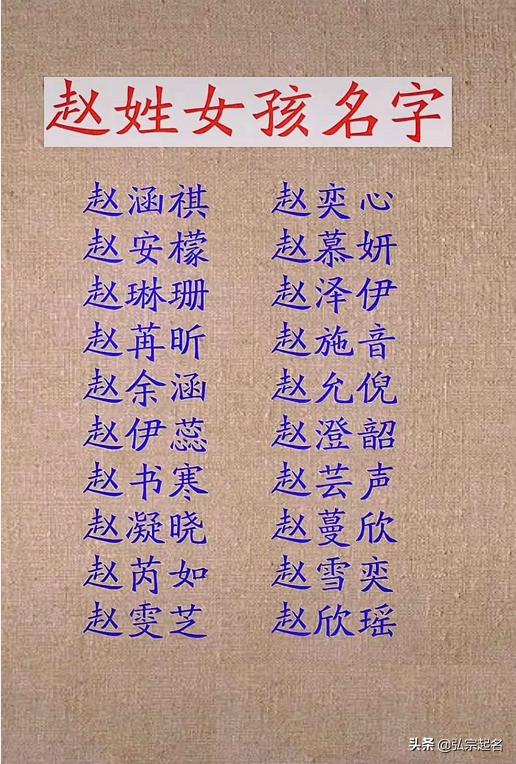 赵姓女孩名字
赵涵祺 赵奕心
赵安檬 赵慕妍
赵琳珊 赵泽伊
赵苒昕 赵施音
赵余涵 赵允倪
赵伊蕊 赵澄韶
赵书寒 赵芸声
赵凝晓 赵蔓欣
赵芮如 赵雪奕
赵雯芝 赵欣瑶
头条 @弘宗起名